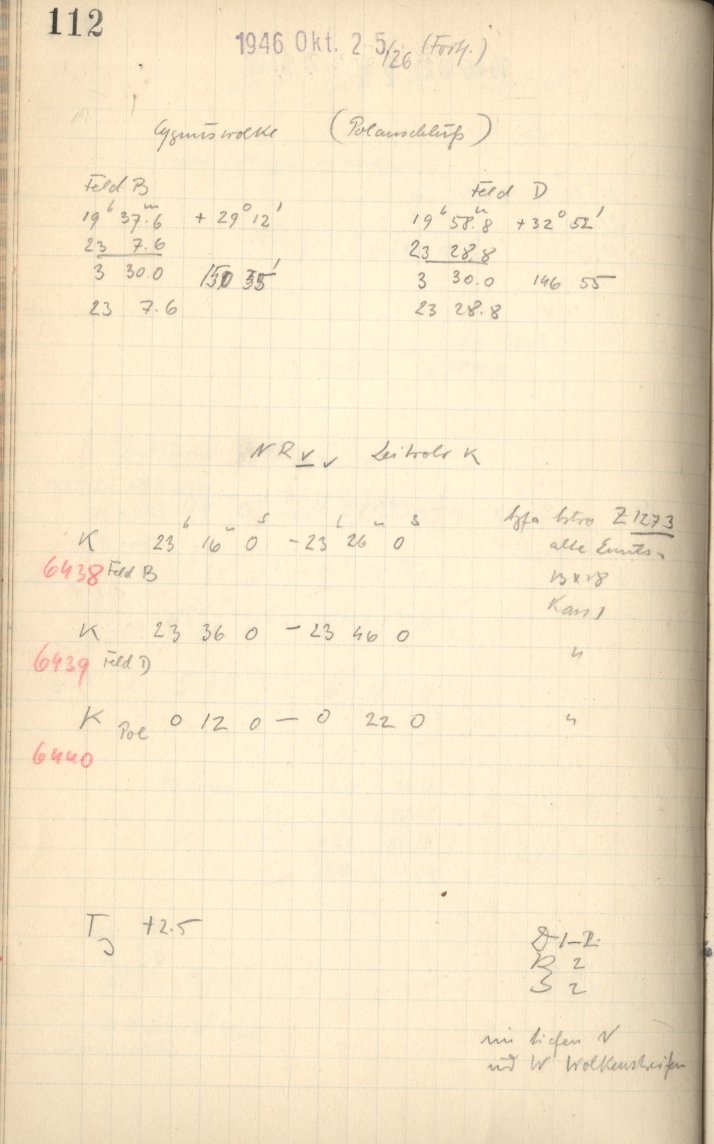 112
1946 Okt. 25/26 (Forts.)
Cygnuswolke (Polanschluß)
Feld B
19ʰ 37ᵐ.6 + 29° 12'
23 7.6
3 30.0 150 35'
23 7.6
Feld D
19ʰ 58ᵐ.8 + 32° 52'
23 28.8
3 30.0 146 55
23 28.8
NR V V Leitrohr K
K 23ʰ 16ᵐ 0ˢ – 23ʰ 26ᵐ 0ˢ Agfa Astro Z 1273
6438 Feld B alte Emuls.
13 x 18
Kass 1
K 23 36 0 – 23 46 0
6439 Feld D "
K Pol 0 12 0 – 0 22 0 "
6440
T +2.5
D 1–2
R 2
S 2
im tiefen N
und W Wolkenstreifen